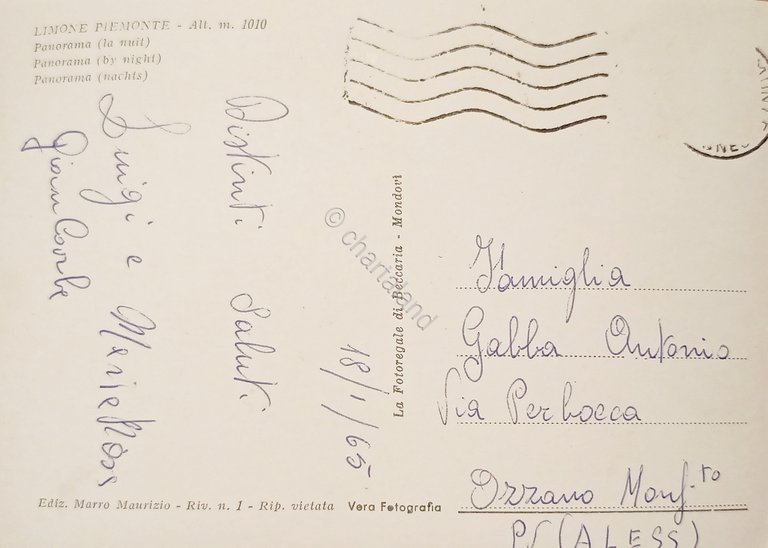 LIMONE PIEMONTE - Alt. m. 1010
Panorama (la nuit)
Panorama (by night)
Panorama (nachts)
18/1/65
Distinti Saluti
Luigi e Maria Rosa
Gian Carlo
La Fotoregale di Beccaria - Mondovì
© chartaland
Famiglia
Gabba Antonio
Via Perbocca
Ozzano Monf.to
(ALESS)
Ediz. Marro Maurizio - Riv. n. 1 - Rip. vietata Vera Fotografia